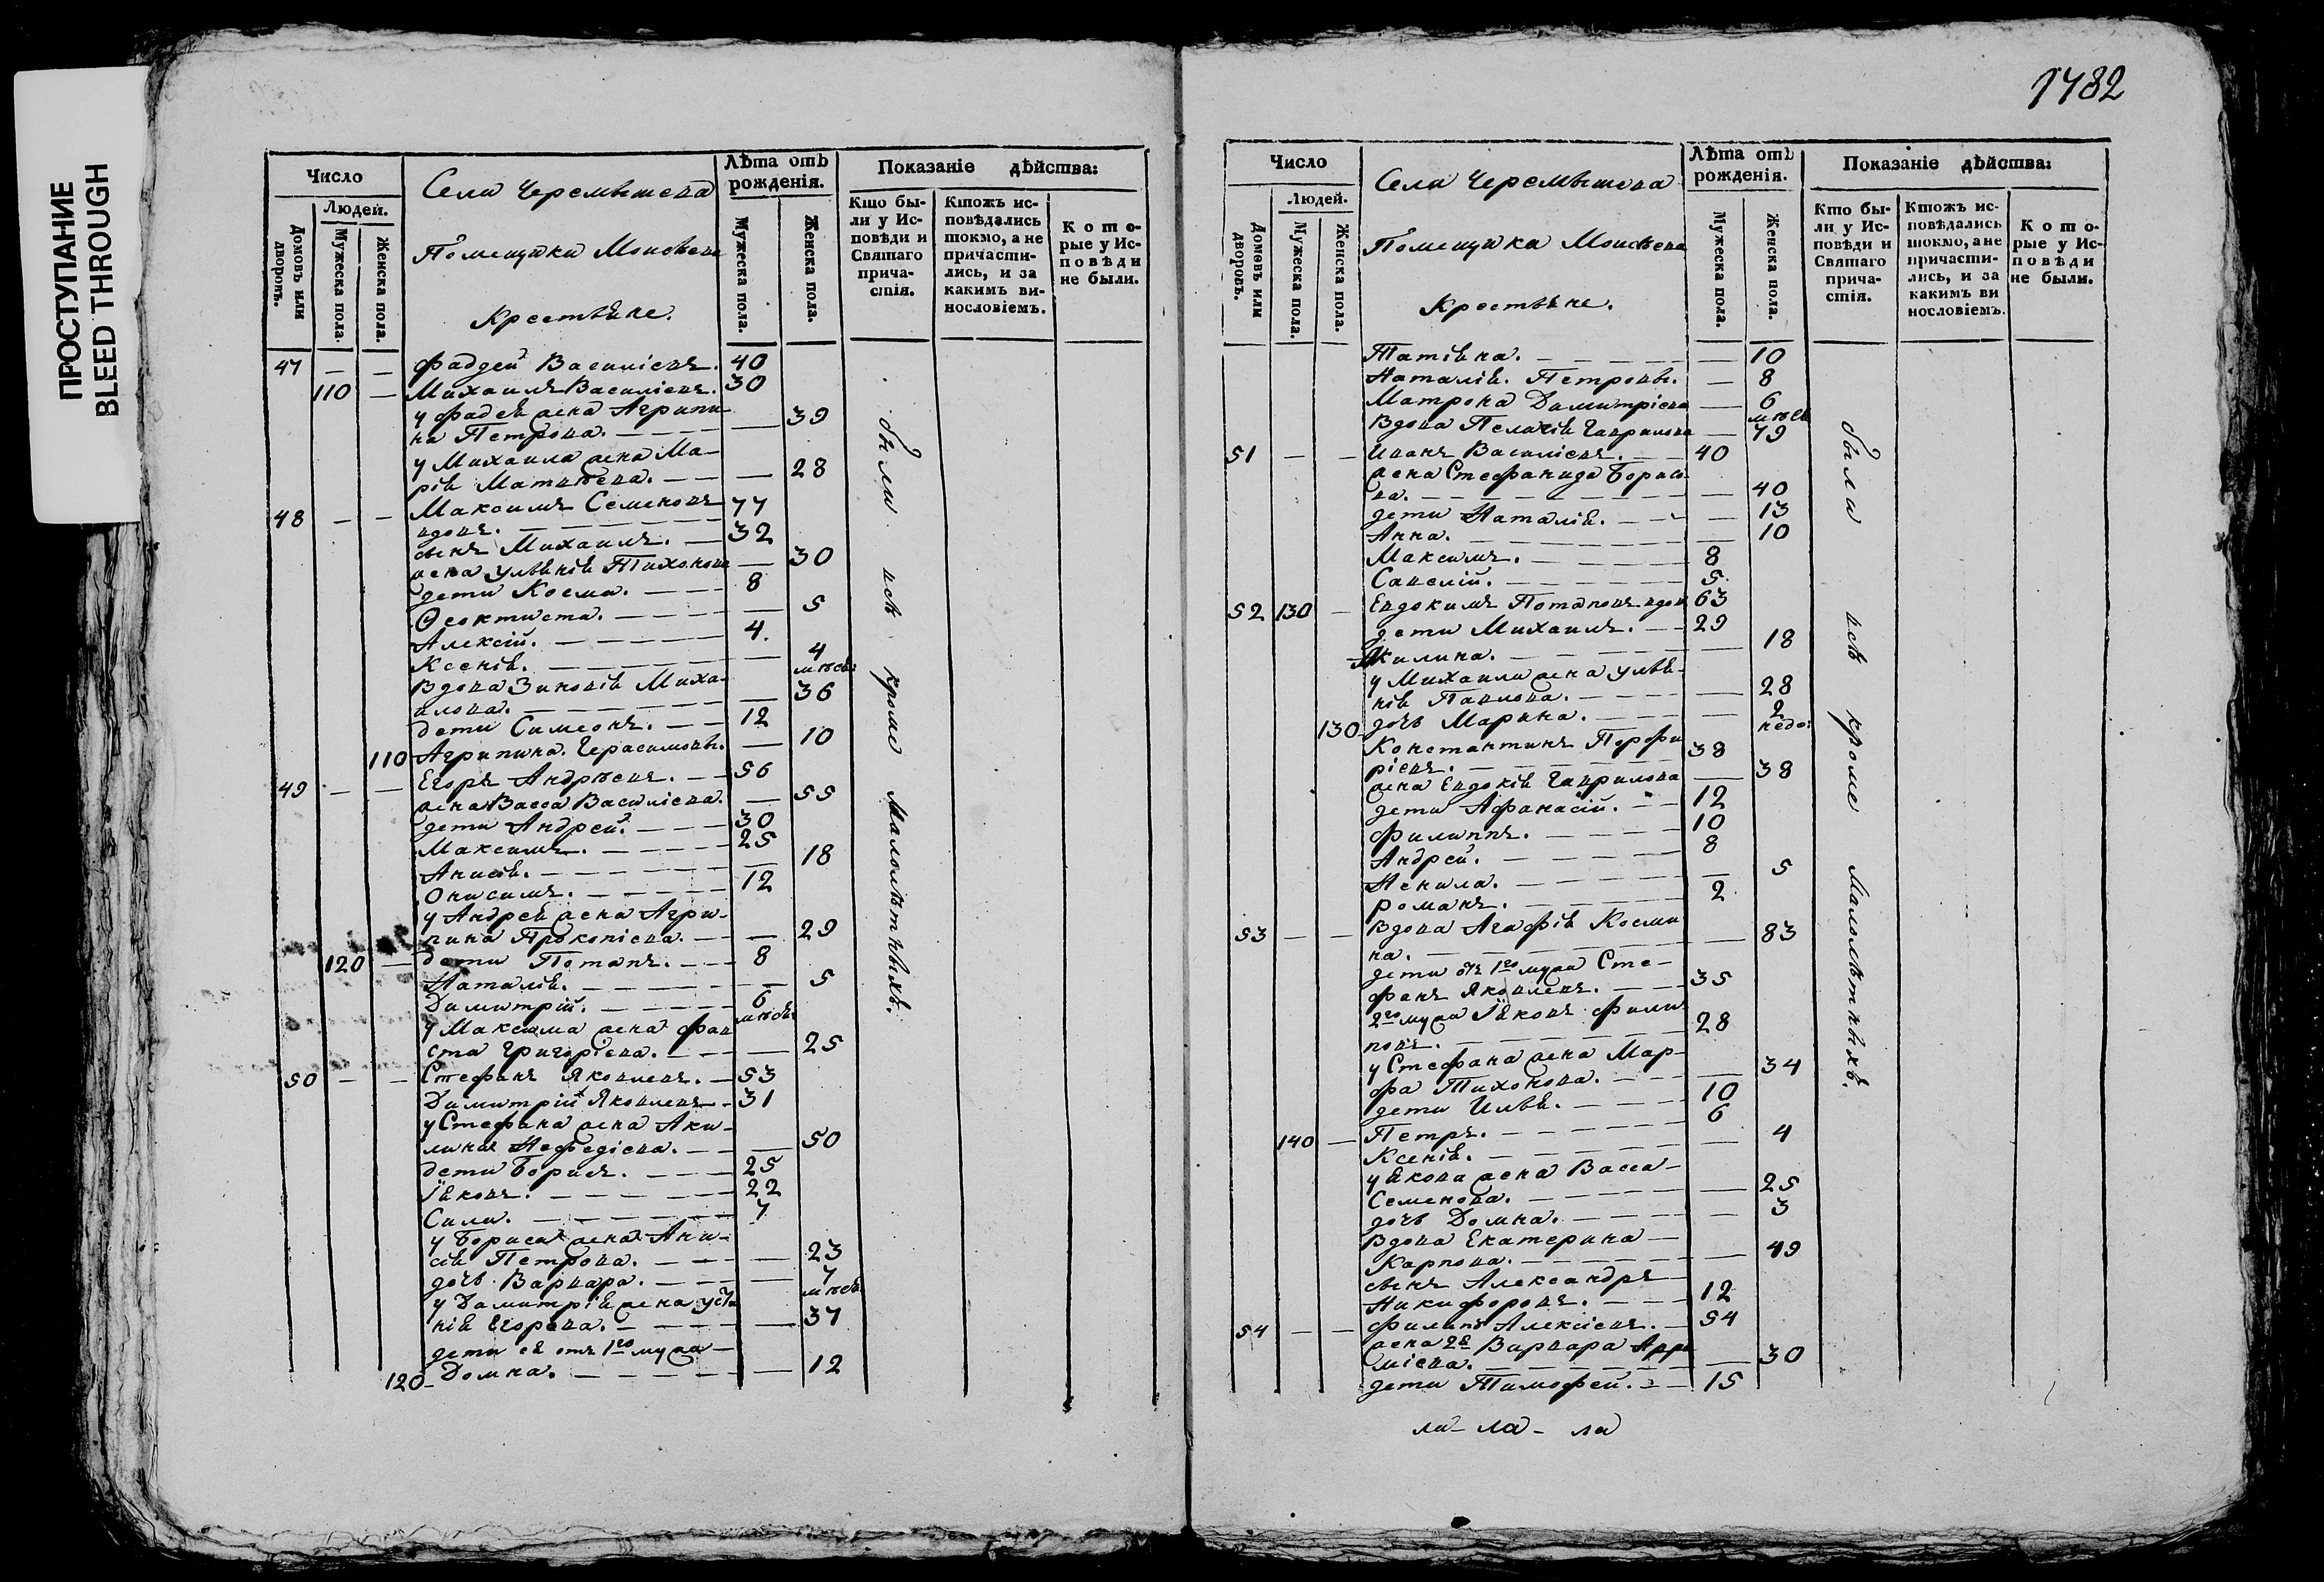 ПРОСТУПАНИЕ
BLEED THROUGH
Число
Людей.
Домовъ или дворовъ.
Мужеска пола.
Женска пола.
Села Черемышева
Помещика Моисеева
Крестьяне.
Лѣта отъ рожденія.
Мужеска пола.
Женска пола.
Показаніе дѣйства:
Кто бы-
ли у Ис-
повѣди и
Святаго
прича-
стія.
Ктожъ ис-
повѣдались
токмо, а не
причасти-
лись, и за
какимъ ви-
нословіемъ.
Кото-
рые у Ис-
повѣди
не были.
47 — — Фадей Василіевъ. 40
110 — Михаилъ Василіевъ. 30
у Фадея жена Агрипи-
на Петрова. — 39
у Михаила жена Ма-
рія Матвѣева. — 28
48 — — Максимъ Семеновъ 77
вдовъ.
сынъ Михаилъ. — 32
жена Ульянія Тихонова — 30
дети Косма. — 8
Ѳеоктиста. — 5
Алексій. — 4.
Ксенія. — 4
мѣсяц:
Вдова Зиновія Миха-
илова. — 36
дети Симеонъ. — 12
110 Агрипина. Герасимовы. — 10
49 — — Егоръ Андрѣевъ. — 56
жена Васса Василіева. — 55
дети Андрей. — 30
Максимъ. — 25
Анисія. — 18
Онисимъ. — 12
у Андрея жена Агри-
пина Прокопіева. — 29
120 — дети Потапъ. — 8
Наталія. — 5
Димитрій. — 6
мѣсяц:
у Максима жена Фав
ста Григоріева. — 25
50 — — Стефанъ Яковлевъ. — 53
Димитрій Яковлевъ — 31
у Стефана жена Аки-
лина Нефедіева. — 50
дети Борисъ. — 25
Іяковъ. — 22
Сила. — 7
у Бориса жена Ани-
сія Петрова. — 23
дочь Варвара. — 7
мѣсяц
у Димитрія жена Усти
нія Егорова. — 37
дети ея отъ 1го мужа —
120 Домна. — 12
были всѣ кроме малолѣтныхъ.
1782
Число
Людей.
Домовъ или дворовъ.
Мужеска пола.
Женска пола.
Села Черемышева
Помещика Моисеева
Крестьяне.
Лѣта отъ рожденія.
Мужеска пола.
Женска пола.
Показаніе дѣйства:
Кто бы-
ли у Ис-
повѣди и
Святаго
прича-
стія.
Ктожъ ис-
повѣдались
токмо, а не
причасти-
лись, и за
какимъ ви
нословіемъ.
Кото-
рые у Ис-
повѣди
не были.
Татіяна. — 10
Наталія. Петровы. — 8
Матрона Димитріева — 6
мѣсяц
Вдова Пелагія Гаврилова — 79
51 — — Иванъ Василіевъ. — 40
жена Стефанида Борисо-
ва. — 40
дети Наталія. — 13
Анна. — 10
Максимъ. — 8
Савелій. — 5.
52 130 — Евдокимъ Потаповъ вдов 63
дети Михаилъ. — 29
Акилина. — 18
у Михаила жена Улья-
нія Павлова. — 28
130 дочь Марина. — 2
недо:
Константинъ Порфи
ріевъ. — 38
жена Евдокія Гаврилова — 38
дети Афанасій. — 12
Филиппъ. — 10
Андрей. — 8
Ненила. — 5
Романъ. — 2
53 — — Вдова Агафія Косми
на. — 83
дети отъ 1го мужа Сте-
фанъ Яковлевъ. — 35
2го мужа Іяковъ Фили-
повъ. — 28
у Стефана жена Мар-
фа Тихонова. — 34
дети Илья. — 10
140 — Петръ. — 6
Ксенія. — 4
у Якова жена Васса —
Семенова. — 25
дочь Домна. — 3
Вдова Екатерина —
Карпова. — 49
сынъ Александръ —
Никифоровъ. — 12
54 — — Филипъ Алексіевъ. — 54
жена 2я Варвара
— 30
дети Тимофей. — 15
были всѣ кроме малолѣтныхъ.